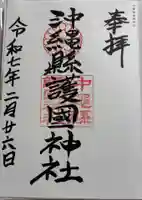 奉拝
沖縄縣護國神社
令和七年二月廿六日